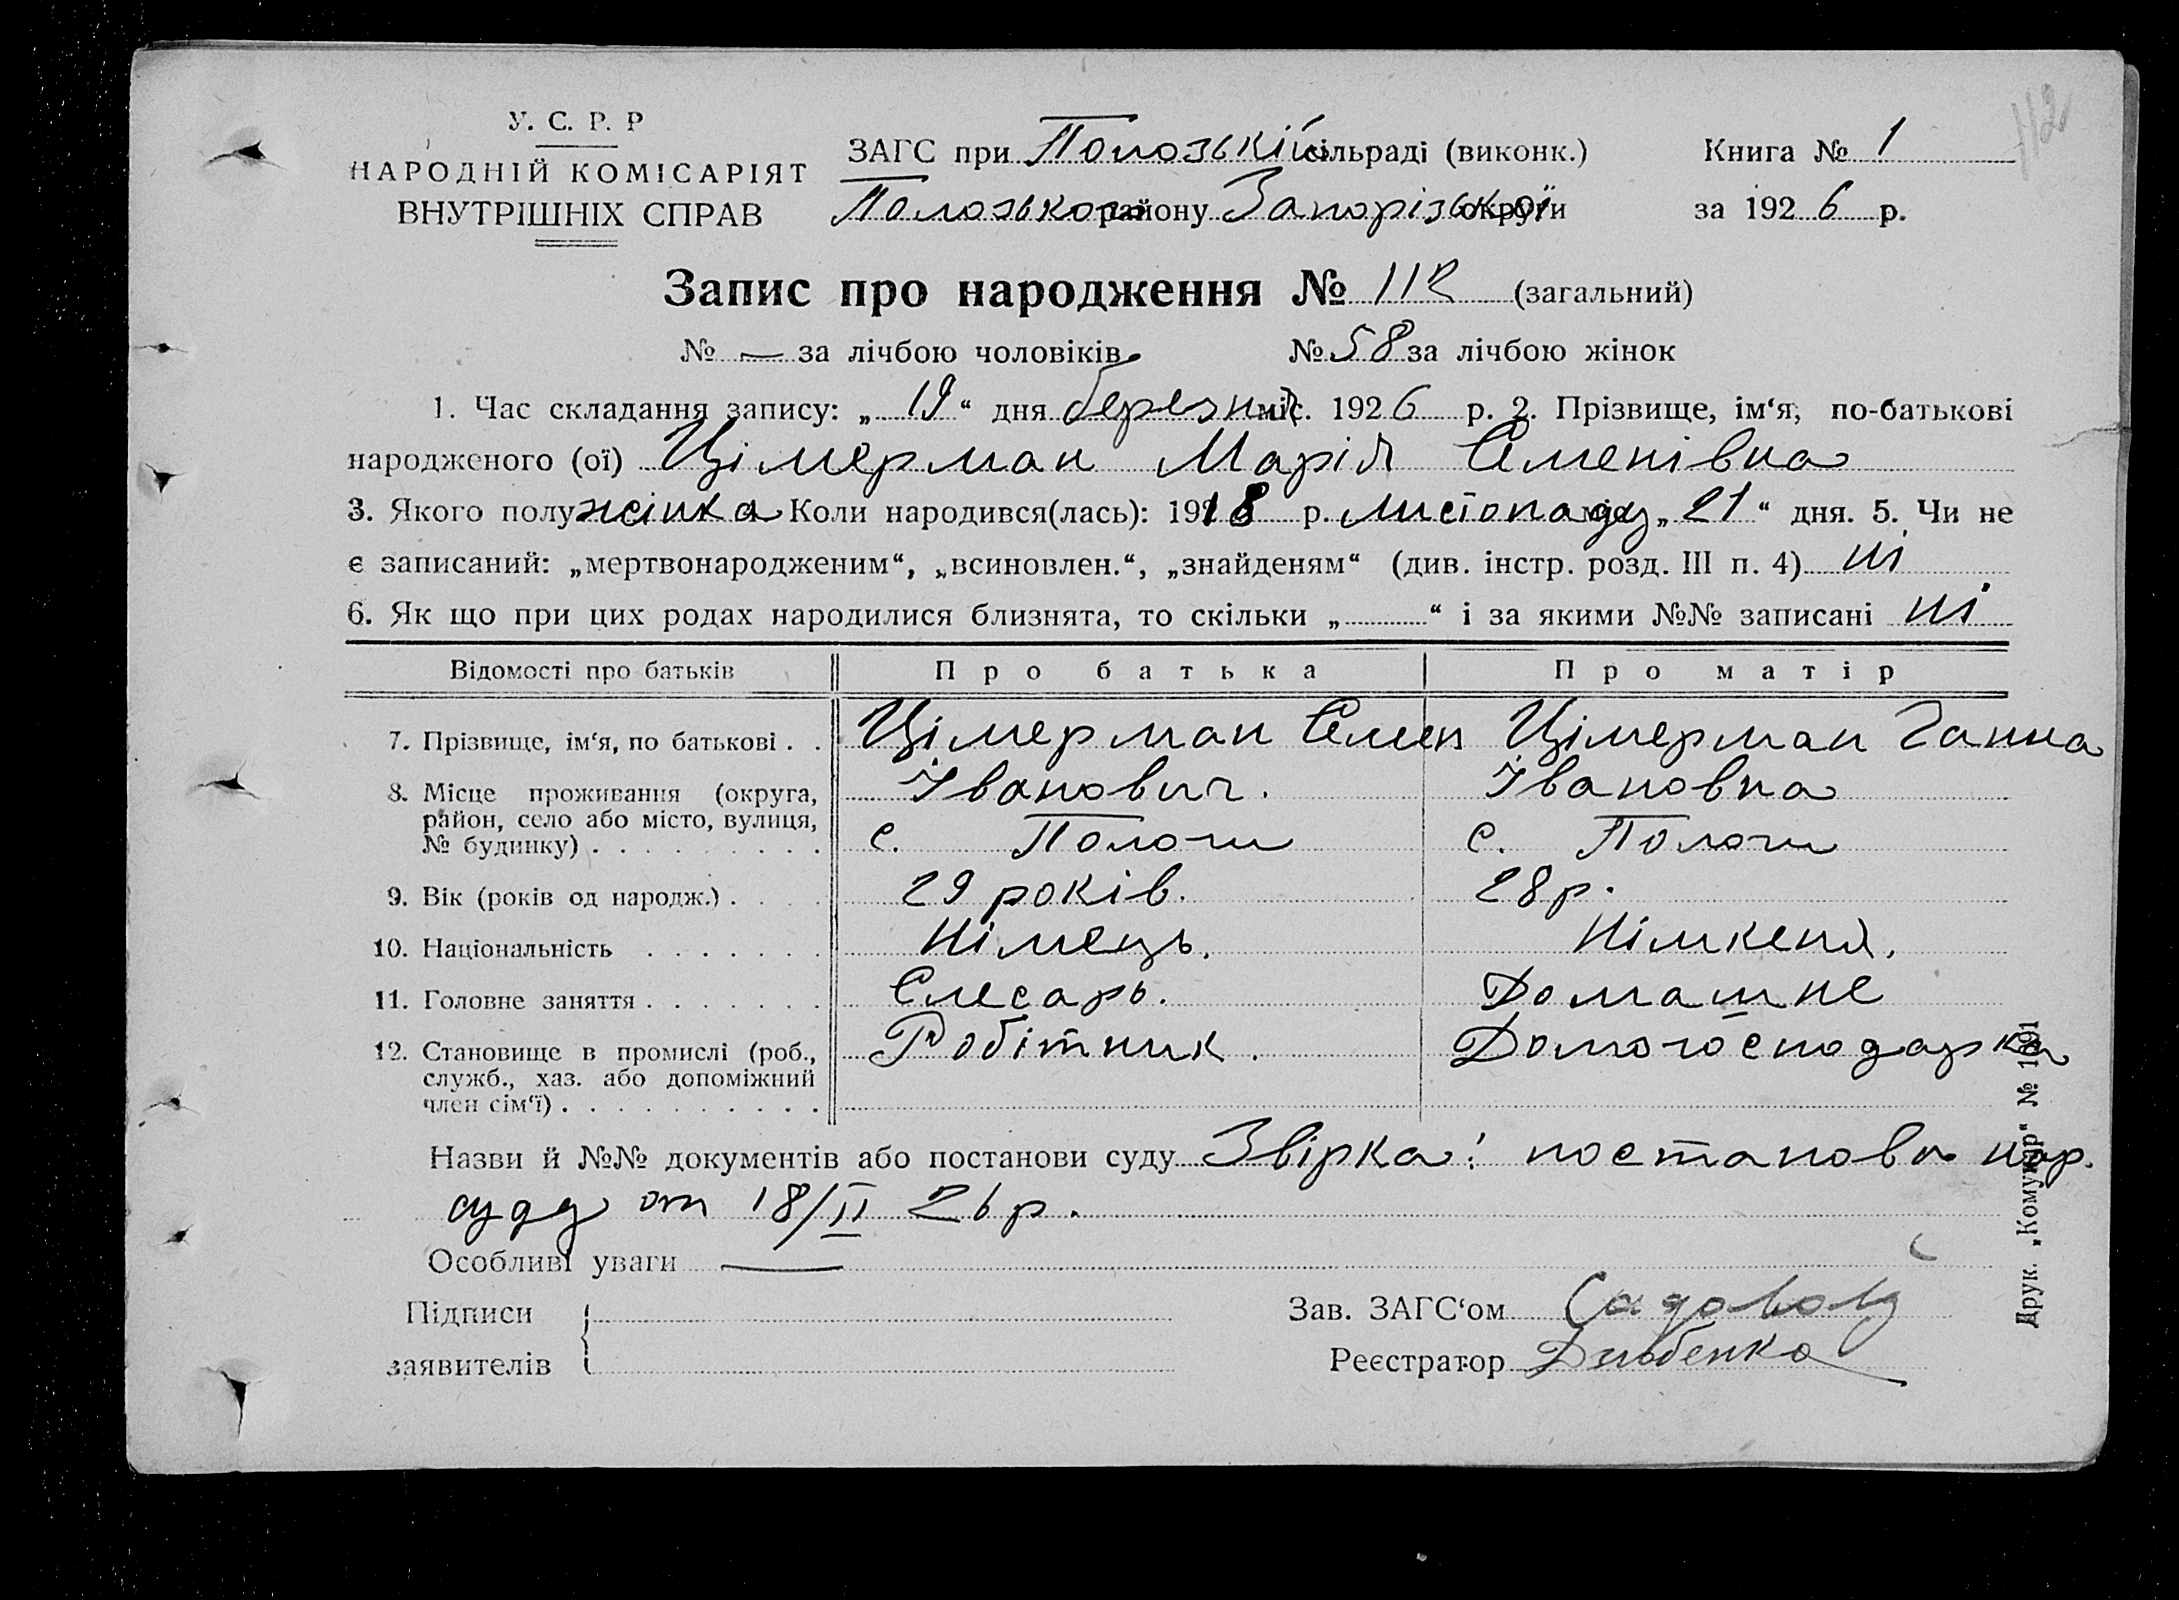 У. С. Р. Р
НАРОДНІЙ КОМІСАРІЯТ
ВНУТРІШНІХ СПРАВ
ЗАГС при Пологзькій сільраді (виконк.)
Пологзького району Запорізької округи
Книга № 1
за 1926 р.
112
Запис про народження № 112 (загальний)
№ — за лічбою чоловіків № 58 за лічбою жінок
1. Час складання запису: „19“ дня березня міс. 1926 р. 2. Прізвище, ім‘я, по-батькові
народженого (ої) Цімерман Марія Семенівна
3. Якого полу жінка Коли народився(лась): 1918 р. листопаду міс. „21“ дня. 5. Чи не
є записаний: „мертвонародженим“, „всиновлен.“, „знайденям“ (див. інстр. розд. III п. 4) ні
6. Як що при цих родах народилися близнята, то скільки „ “ і за якими №№ записані ні
Відомості про батьків Про батька Про матір
7. Прізвище, ім‘я, по батькові . . Цімерман Семен Цімерман Ганна
Іванович. Івановна
8. Місце проживання (округа,
район, село або місто, вулиця,
№ будинку) . . . . . . . . . с. Пологи с. Пологи
9. Вік (років од народж.) . . . . 29 років. 28 р.
10. Національність . . . . . . . Німець. Німкеня.
11. Головне заняття . . . . . . . Слесарь. Домашнє
12. Становище в промислі (роб.,
служб., хаз. або допоміжний
член сім‘ї) . . . . . . . . . . Робітник. Домогосподарка
Назви й №№ документів або постанови суду Звірка: постанова нар.
суду от 18/II 26 р.
Особливі уваги —
Підписи
заявителів
Зав. ЗАГС‘ом Садовой
Реєстратор
Друк. „Комунар“ № 1691